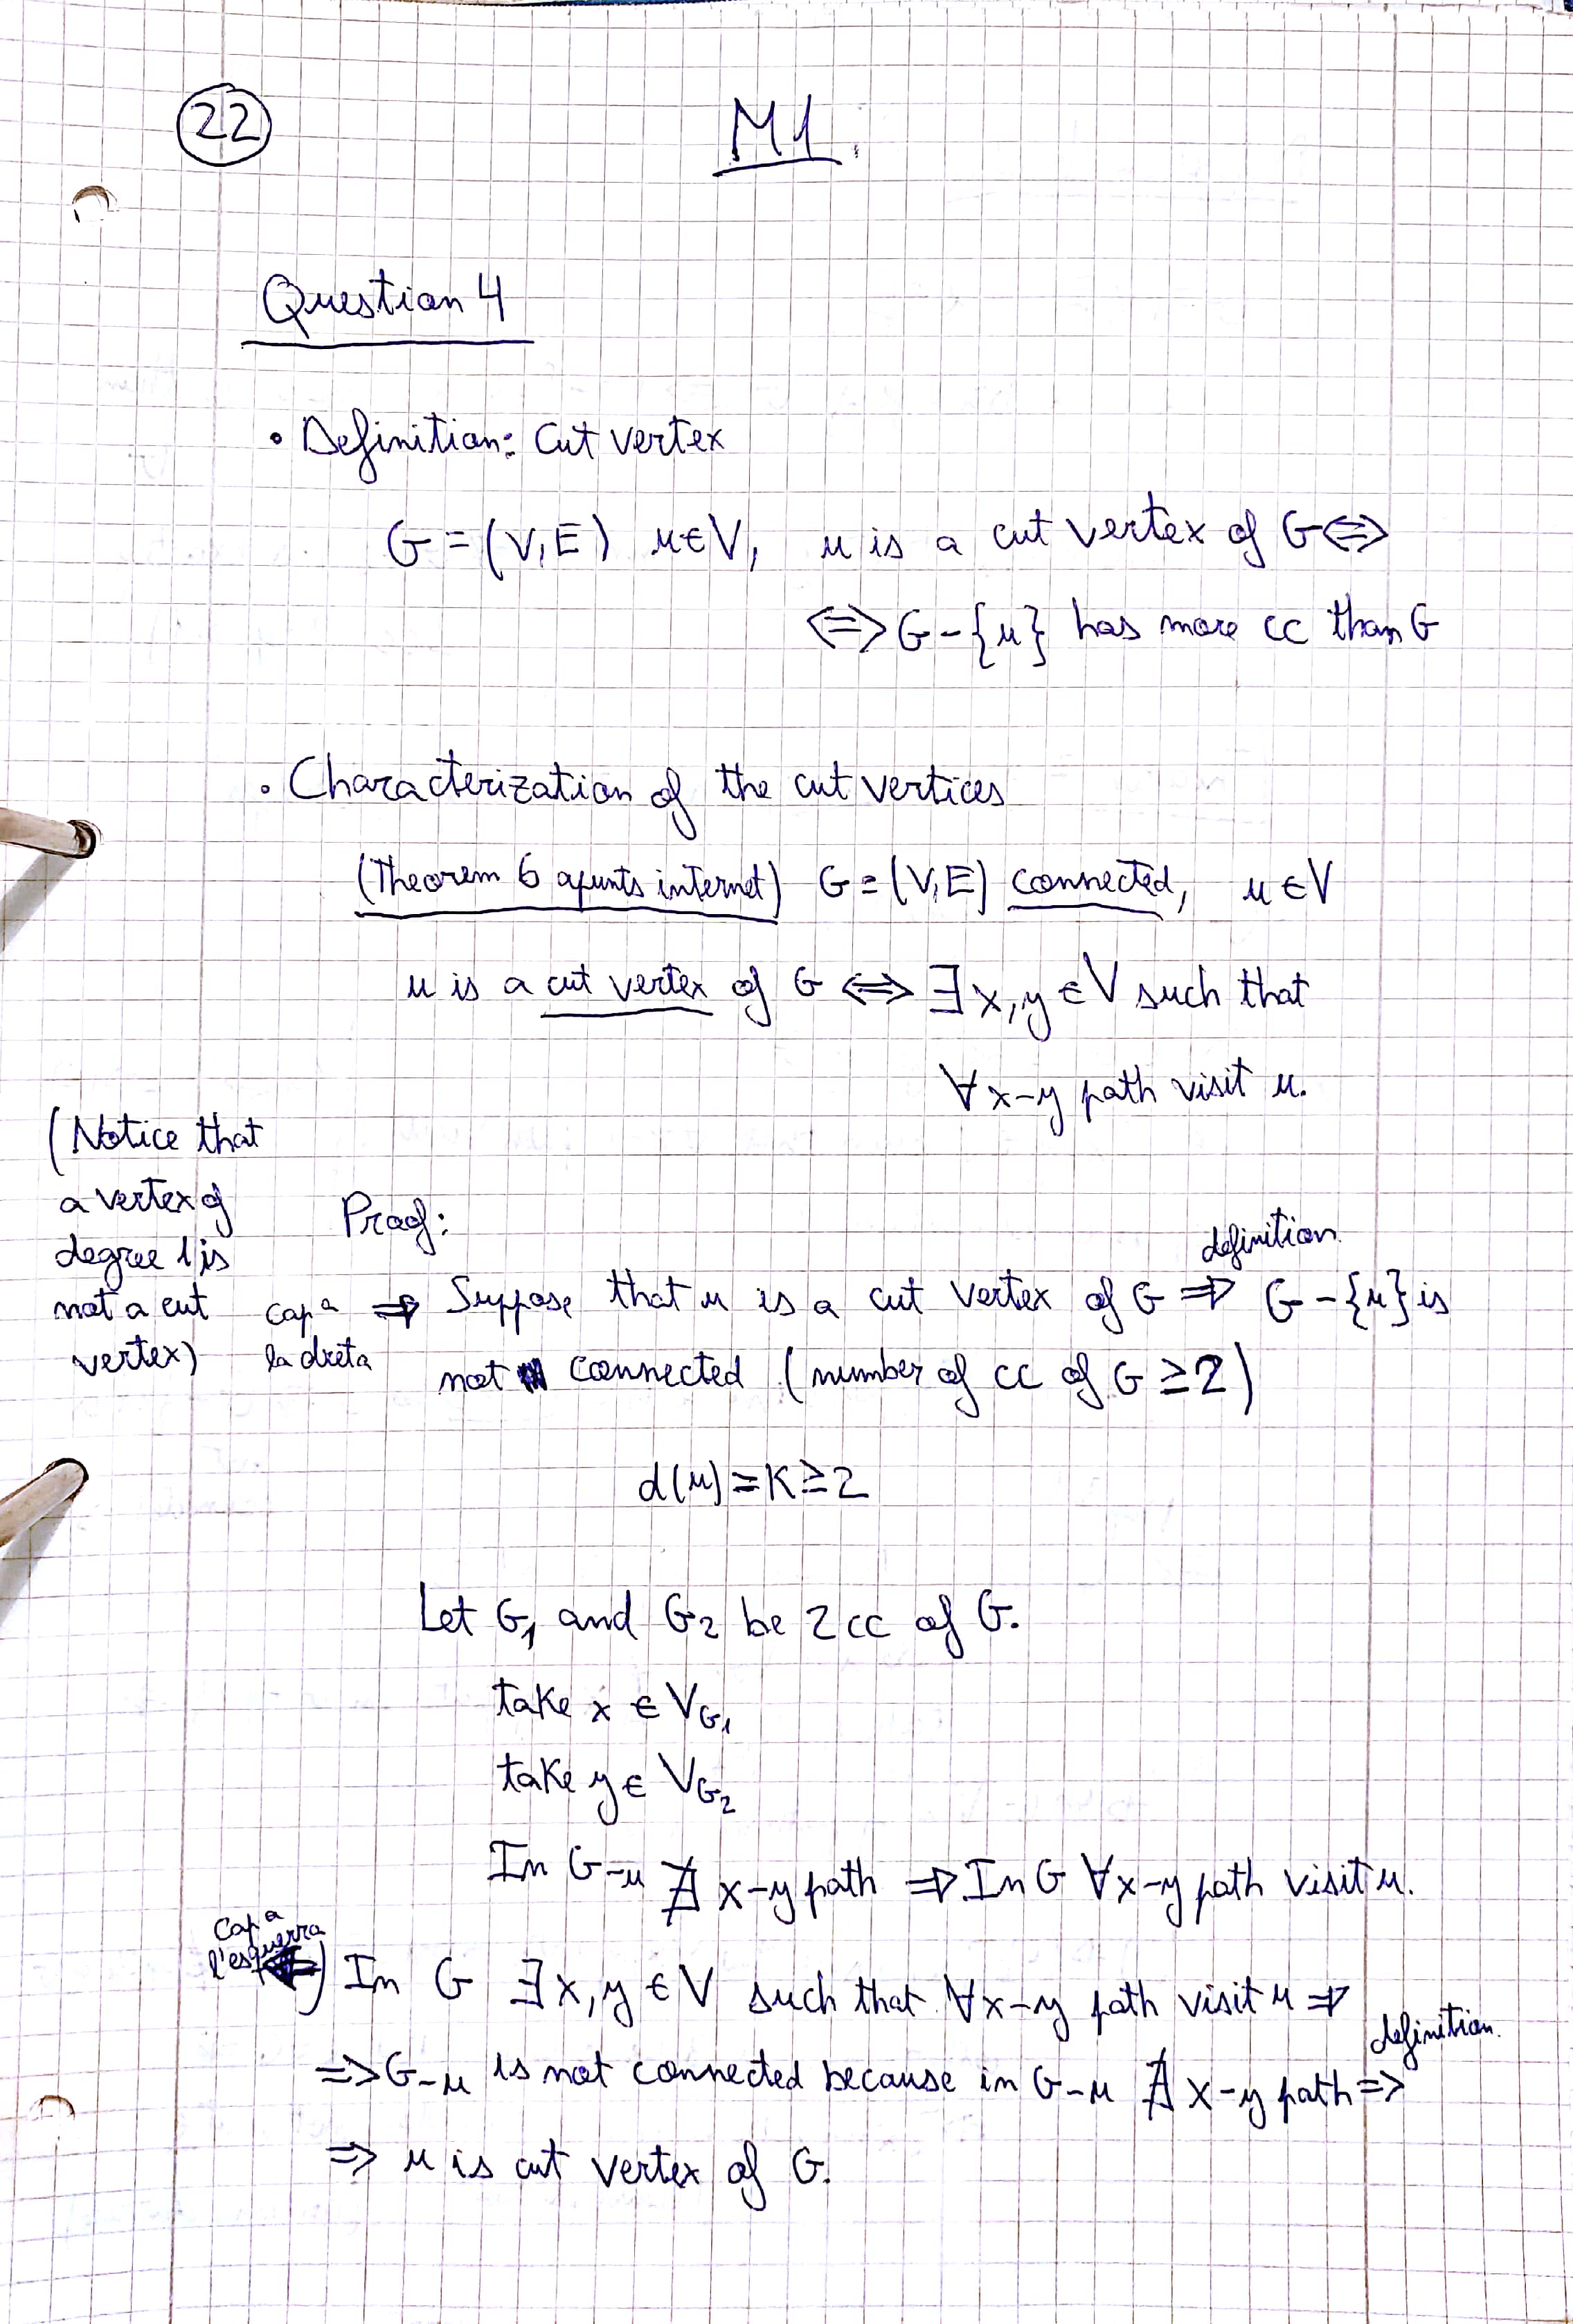 22
M1.
Question 4
• Definition: Cut vertex
G = (V, E) u ∈ V, u is a cut vertex of G ⇔
⇔ G - {u} has more cc than G
• Characterization of the cut vertices
(Theorem 6 apunts internet) G = (V, E) connected, u ∈ V
u is a cut vertex of G ⇔ ∃ x, y ∈ V such that
∀ x-y path visit u.
(Notice that
a vertex of
degree 1 is
not a cut
vertex)
Proof:
cap a
la dreta
definition
⇒ Suppose that u is a cut vertex of G ⇒ G - {u} is
not connected (number of cc of G ≥ 2)
d(u) = K ≥ 2
Let G₁ and G₂ be 2 cc of G.
take x ∈ V_G₁
take y ∈ V_G₂
In G-u ∄ x-y path ⇒ In G ∀ x-y path visit u.
cap a
l'esquerra
⇐) In G ∃ x, y ∈ V such that ∀ x-y path visit u ⇒
definition.
⇒ G-u is not connected because in G-u ∄ x-y path ⇒
⇒ u is cut vertex of G.